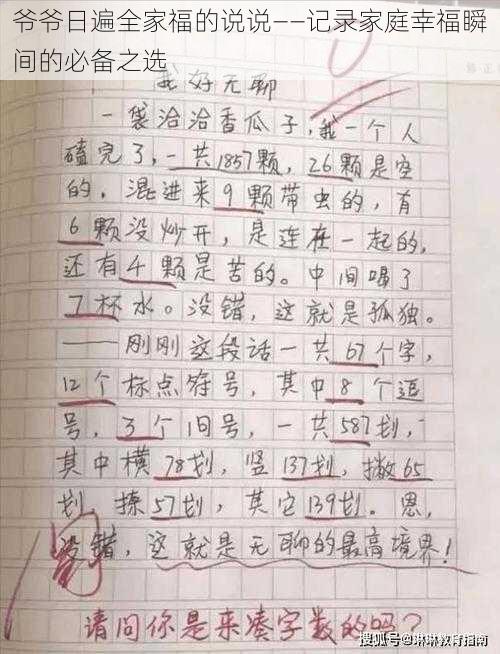 爷爷日遍全家福的说说——记录家庭幸福瞬
间的必备之选
我好无聊
一袋洽洽香瓜子，我一个人
磕完了，一共1857颗，26颗是空
的，混进来9颗带虫的，有
6颗没炒开，是连在一起的，
还有4颗是苦的。中间喝了
7杯水。没错，这就是孤独。
——刚刚这段话一共67个字，
12个标点符号，其中8个逗
号，3个句号，一共587划，
其中横78划，竖137划，撇65
划，捺57划，其它139划。恩，
没错，这就是无聊的最高境界！
请问你是来凑字数的吗？
搜狐号@琳琳教育指南